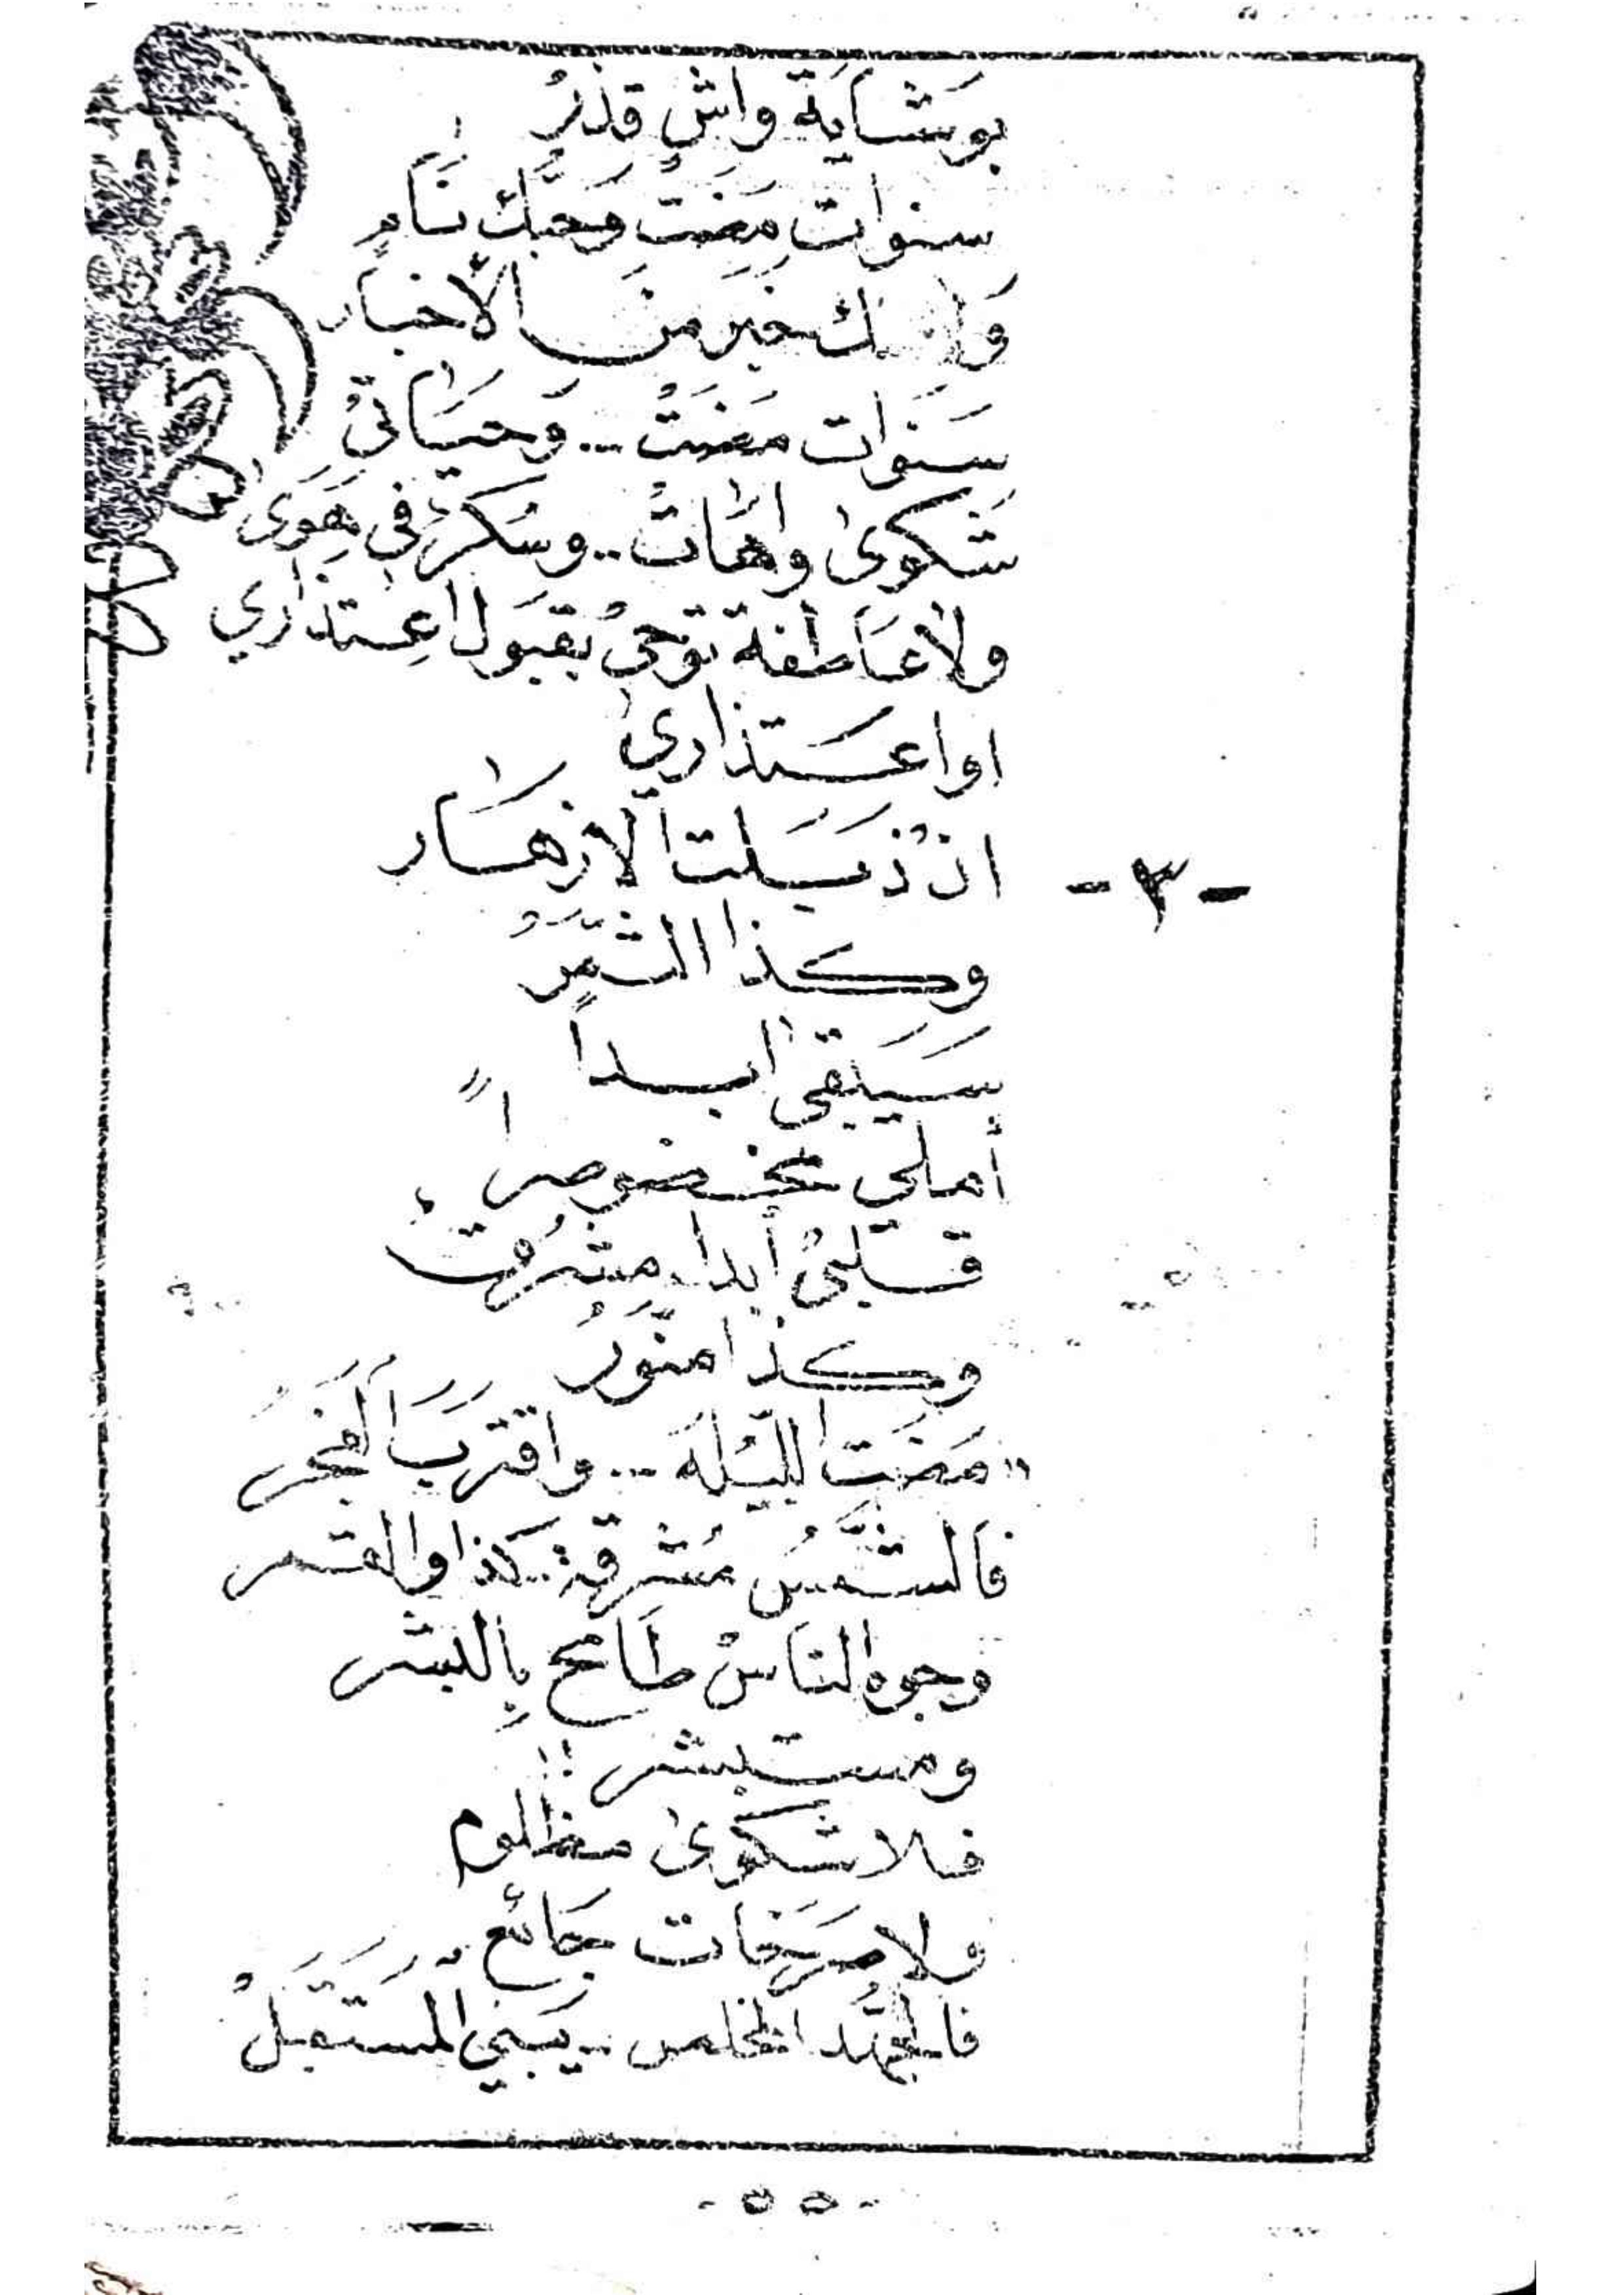 بوَشَايَة واشٍ قذرُ
سنوات مَضَتْ وَحَبَّك نَامٍ
خبر من الأخبار
سَنَوات مَضَتْ .. وَحَيَاتيْ
شَكوىٰ واهَاتْ .. وسُكرٌ في هَوَى
ولا عَاطفة توحيْ بقبَول اعِتذاري
او اعتذاري
-٣- ان ذبَلت الازهَار
وكذا الثمَّرُ
سَيَبقى ابداً
أملي مخضوضراً
قلبيْ أبدا مشرُقٌ
وكذا منَّورُ
"مَضَت الليْلَه ... واقتربَ الفَجَرَ
فالشَّمسُ مُشرقة .. كذا والقمر
وجوه الناسْ طَامح بِالبشر
ومستبشر !!
فلا شكوىٰ مظلوم
ولا صرَخَات جَائع
فالجهُد المخلص .. يَبني المستَقبَلْ
- ٥٥ -